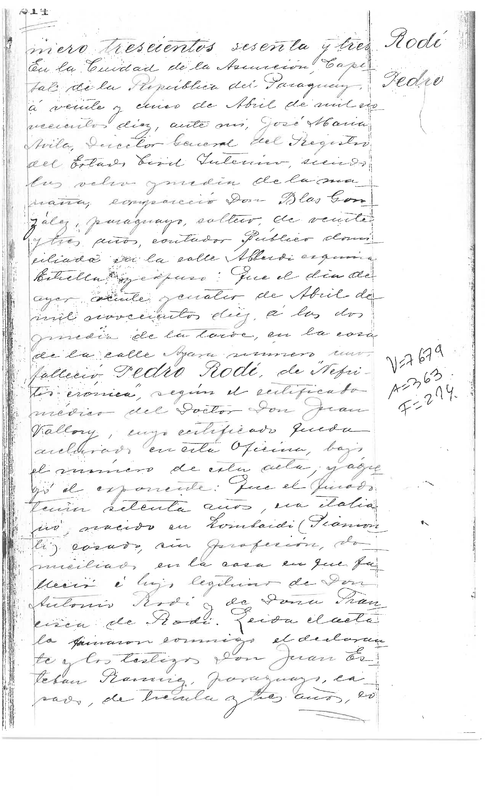 214
mero trescientos sesenta y tres
Rodi
En la Ciudad de la Asunción, Capi-
Pedro
tal de la República del Paraguay
á veinte y cinco de Abril de mil no
vecientos diez, ante mi, José María
Avila, Director General del Registro
del Estado Civil Interino, siendo
las nueve y media de la ma-
ñana, compareció Don Blas Gon
zález, paraguayo, soltero, de veinte
y tres años, contador Público domi
ciliado en la calle Alberdi esquina
Estrella y expuso: Que el dia de
ayer veinte y cuatro de Abril de
mil novecientos diez, á las dos
y media de la tarde, en la casa
de la calle Azara numero uno
falleció Pedro Rodi, de "Nefri-
tis cronica", según el certificado
médico del Doctor Don Juan
Vallory, cuyo certificado queda
archivado en esta Oficina, bajo
el número de esta acta, y agre
gó el exponente: Que el finado
tenia setenta años, era italia
no, nacido en Lombardi (Piamon
te) casado, sin profesión, do
miciliado en la casa en que fa
lleció é hijo legitimo de Don
Antonio Rodi y de Doña Fran
cisca de Rodi. Leida el acta
la firmaron conmigo el declaran
te y los testigos Don Juan Es
teban Ramirez, paraguayo, ca
sado, de treinta y tres años, co
V=7679
A=363
F=274.